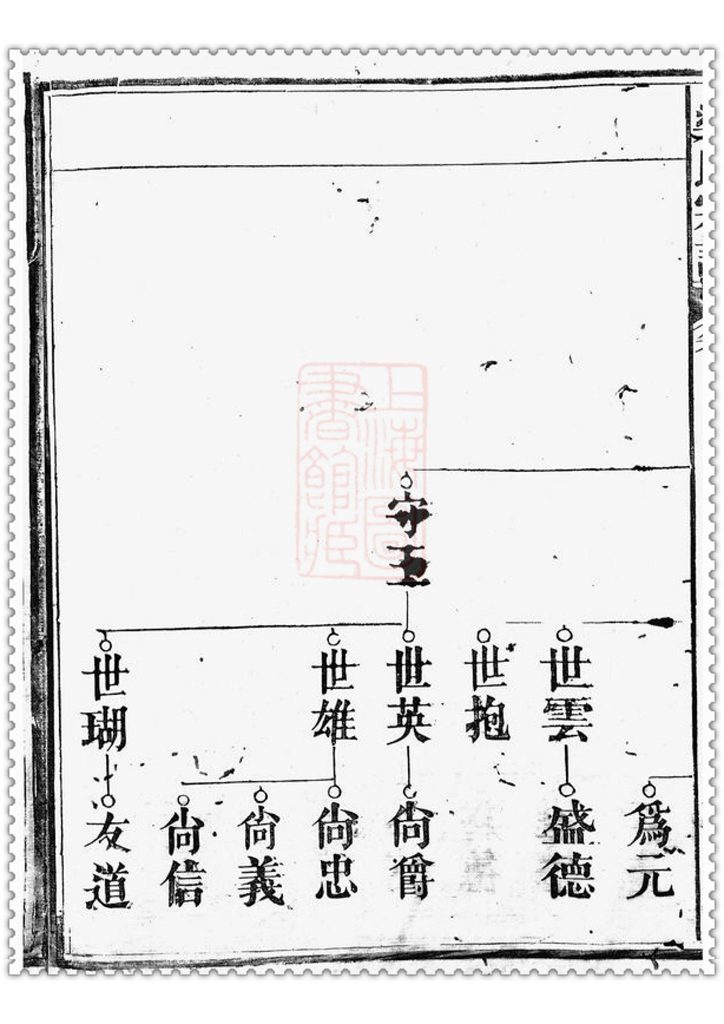 守玉
世雲
世抱
世英
世雄
世瑚
爲元
盛德
尙爵
尙忠
尙義
尙信
友道
上海圖書館藏